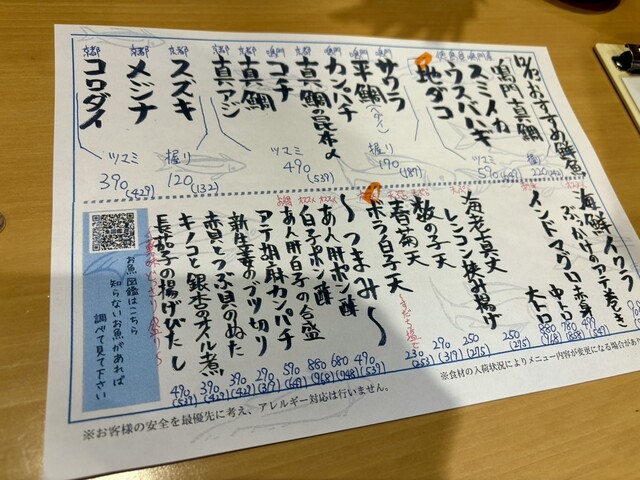 おすすめ鮮魚
鳴門 真鯛
スミイカ
ウスバハギ
徳島県 鳴門産
地ダコ
握り
220
ツマミ
鳴門
サワラ
平鯛(ヘダイ)
鳴門
カンパチ
真鯛の昆布〆
鳴門
コチ
京都
真鯛
京都
真アジ
握り
170
(187)
ツマミ
490
(539)
京都
スズキ
京都
メジナ
京都
コロダイ
握り
120
(132)
ツマミ
390
(429)
海鮮イクラ
ぶっかけのアテ巻き
インドマグロ 赤身
中トロ
大トロ
海老真丈
レンコン挟み揚げ
250
(295)
数の子天
290
(319)
春菊天
230
(253)
ボラ白子天
490
(539)
〜つまみ〜
あん肝ポン酢
680
(748)
白子ポン酢
880
(968)
あん肝白子の合盛
アテ胡麻カンパチ
590
(649)
新生姜のブツ切り
290
(319)
赤貝とつぶ貝のぬた
390
(429)
キノコと銀杏のオイル煮
390
(429)
長茄子の揚げびたし
490
(539)
お魚図鑑はこちら
知らないお魚があれば
調べて見て下さい
※お客様の安全を最優先に考え、アレルギー対応は行いません。
※食材の入荷状況によりメニュー内容が変更になる場合があり